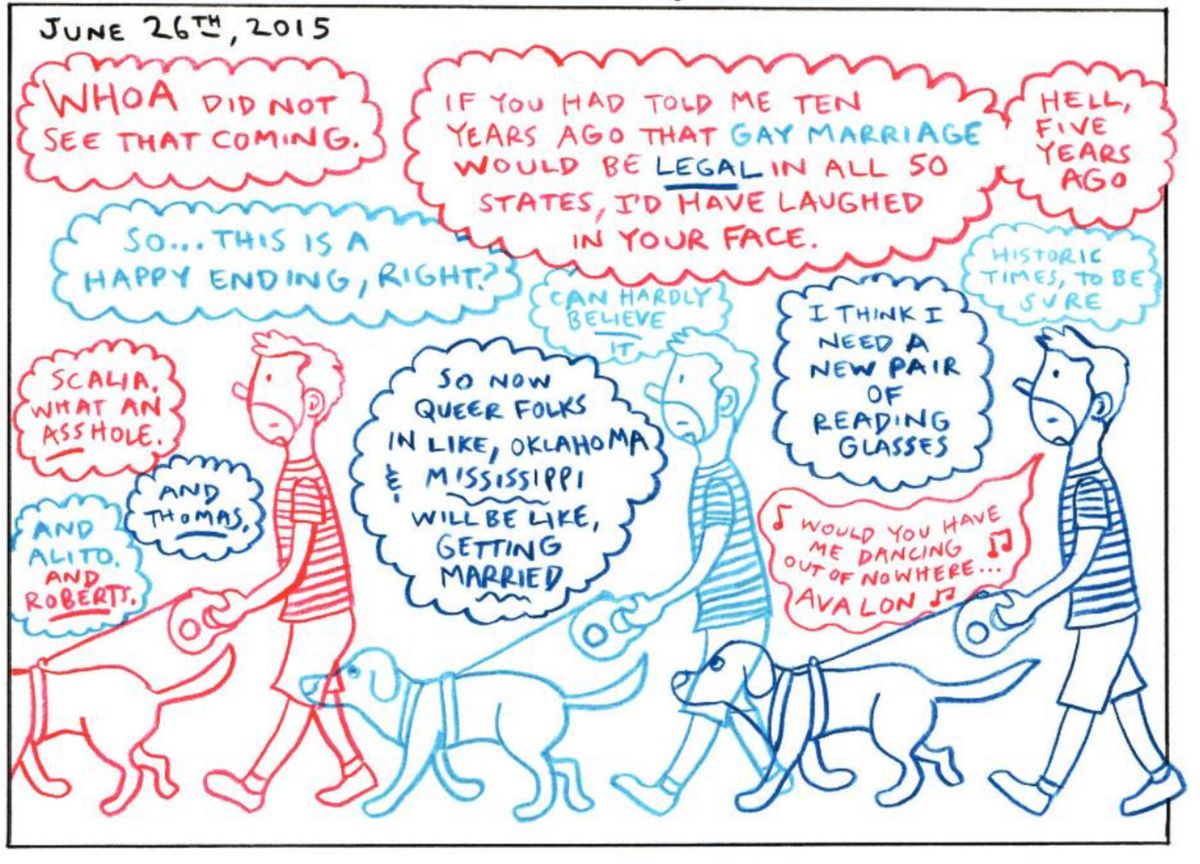 JUNE 26TH, 2015
WHOA DID NOT
SEE THAT COMING.
IF YOU HAD TOLD ME TEN
YEARS AGO THAT GAY MARRIAGE
WOULD BE LEGAL IN ALL 50
STATES, I'D HAVE LAUGHED
IN YOUR FACE.
HELL,
FIVE
YEARS
AGO
SO... THIS IS A
HAPPY ENDING, RIGHT?
CAN HARDLY
BELIEVE
IT
I THINK I
NEED A
NEW PAIR
OF
READING
GLASSES
HISTORIC
TIMES, TO BE
SURE
SCALIA.
WHAT AN
ASSHOLE.
AND
THOMAS.
AND
ALITO.
AND
ROBERTS.
SO NOW
QUEER FOLKS
IN LIKE, OKLAHOMA
& MISSISSIPPI
WILL BE LIKE,
GETTING
MARRIED
♪ WOULD YOU HAVE
ME DANCING ♫
OUT OF NOWHERE...
AVALON ♫